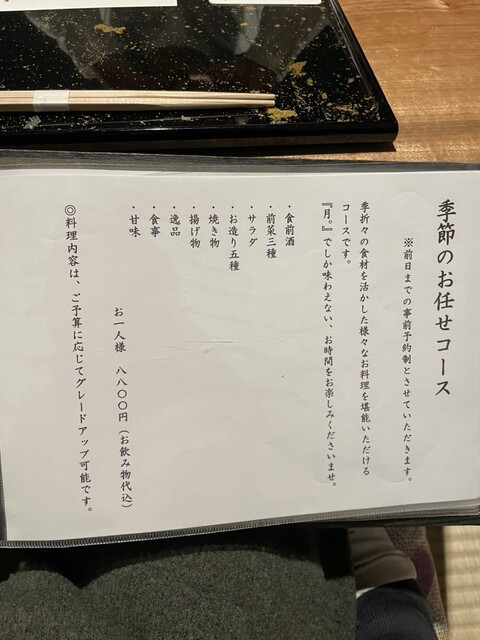 季節のお任せコース
※前日までの事前予約制とさせていただきます。
季折々の食材を活かした様々なお料理を堪能いただける
コースです。
『月。』でしか味わえない、お時間をお楽しみくださいませ。
・食前酒
・前菜三種
・サラダ
・お造り五種
・焼き物
・揚げ物
・逸品
・食事
・甘味
お一人様 八八〇〇円（お飲み物代込）
◎料理内容は、ご予算に応じてグレードアップ可能です。